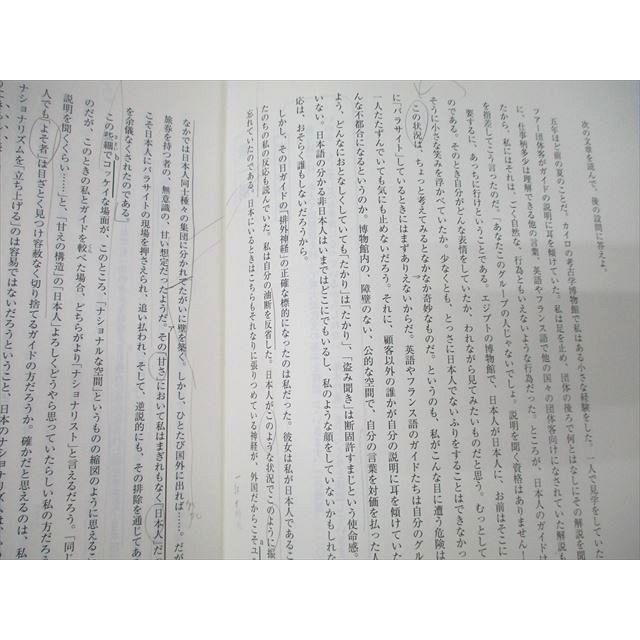 次の文章を読んで、後の設問に答えよ。
五年ほど前の夏のことだ。カイロの考古学博物館で私はある小さな経験をした。一人で見学をしていた
ファー団体客がガイドの説明に耳を傾けていた。私は足を止め、団体の後ろで何とはなしにその解説を聞
に、仕事柄多少は理解できる他の言葉、英語やフランス語で他の国々の団体客向けになされていた解説も
たから、私にはそれは、ごく自然な、行為ともいえないような行為だった。ところが、日本人のガイドは
を指差してこう言ったのだ。「あなたこのグループの人じゃないでしょ。説明を聞く資格はありません!
要するに、あっちに行けということである。エジプトの博物館で、日本人が日本人に、お前はそこに
のである。そのとき自分がどんな表情をしていたか、われながら見てみたいものだと思う。むっとして
そうに小さな笑みを浮かべていたか。少なくとも、とっさに日本人でないふりをすることはできなかっ
この状況は、ちょっと考えてみるとなかなか奇妙なものだ。というのも、私がこんな目に遭う危険は
に「パラサイト」しているときにはまずありえないからだ。英語やフランス語のガイドたちは自分のグル
一人たたずんでいても気にも止めないだろう。それに、顧客以外の誰かが自分の説明に耳を傾けていた
んな不都合になるというのか。博物館内の、障壁のない、公的な空間で、自分の言葉を対価を払った人
よう、どんなにおとなしくしていても「たかり」は「たかり」、「盗み聞き」は断固許すまじという使命感。
いない。日本語の分かる非日本人はいまではどこにでもいるし、私のような顔をしていないかもしれな
応は、おそらく誰もしないだろうから。
しかし、その日ガイドの「排外神経」の正確な標的になったのは私だった。彼女は私が日本人であるこ
たのちの私の反応も読んでいた。私は自分の油断を反省した。日本人がこのような状況でこのように振
忘れていたのである。日本にいるときはこちらもそれなりに張りつめている神経が、外国だからこそユ
なかでは日本人同士種々の集団に分かれてたがいに壁を築く。しかし、ひとたび国外に出れば……。だが
旅券を持つ者の、無意識の、甘い想定だったようだ。その「甘さ」において私はまぎれもなく「日本人」だ
こそ日本人にパラサイトの現場を押さえられ、追い払われ、そして、逆説的にも、その排除を通じてあ
を余儀なくされたのである。
この些細でコッケイな場面が、このところ、「ナショナルな空間」というものの縮図のように思えるこ
のだが、このときの私とガイドを較べた場合、どちらがより「ナショナリスト」と言えるだろう。「同じ
説明を聞くくらい……」と、「甘えの構造」の「日本人」よろしくどうやら思っていたらしい私の方だろう
人でも「よそ者」は目ざとく見つけ容赦なく切り捨てるガイドの方だろうか。確かだと思えるのは、私
ナショナリズムを「立ち上げる」のは容易ではないだろうということ、日本のナショナリズムは